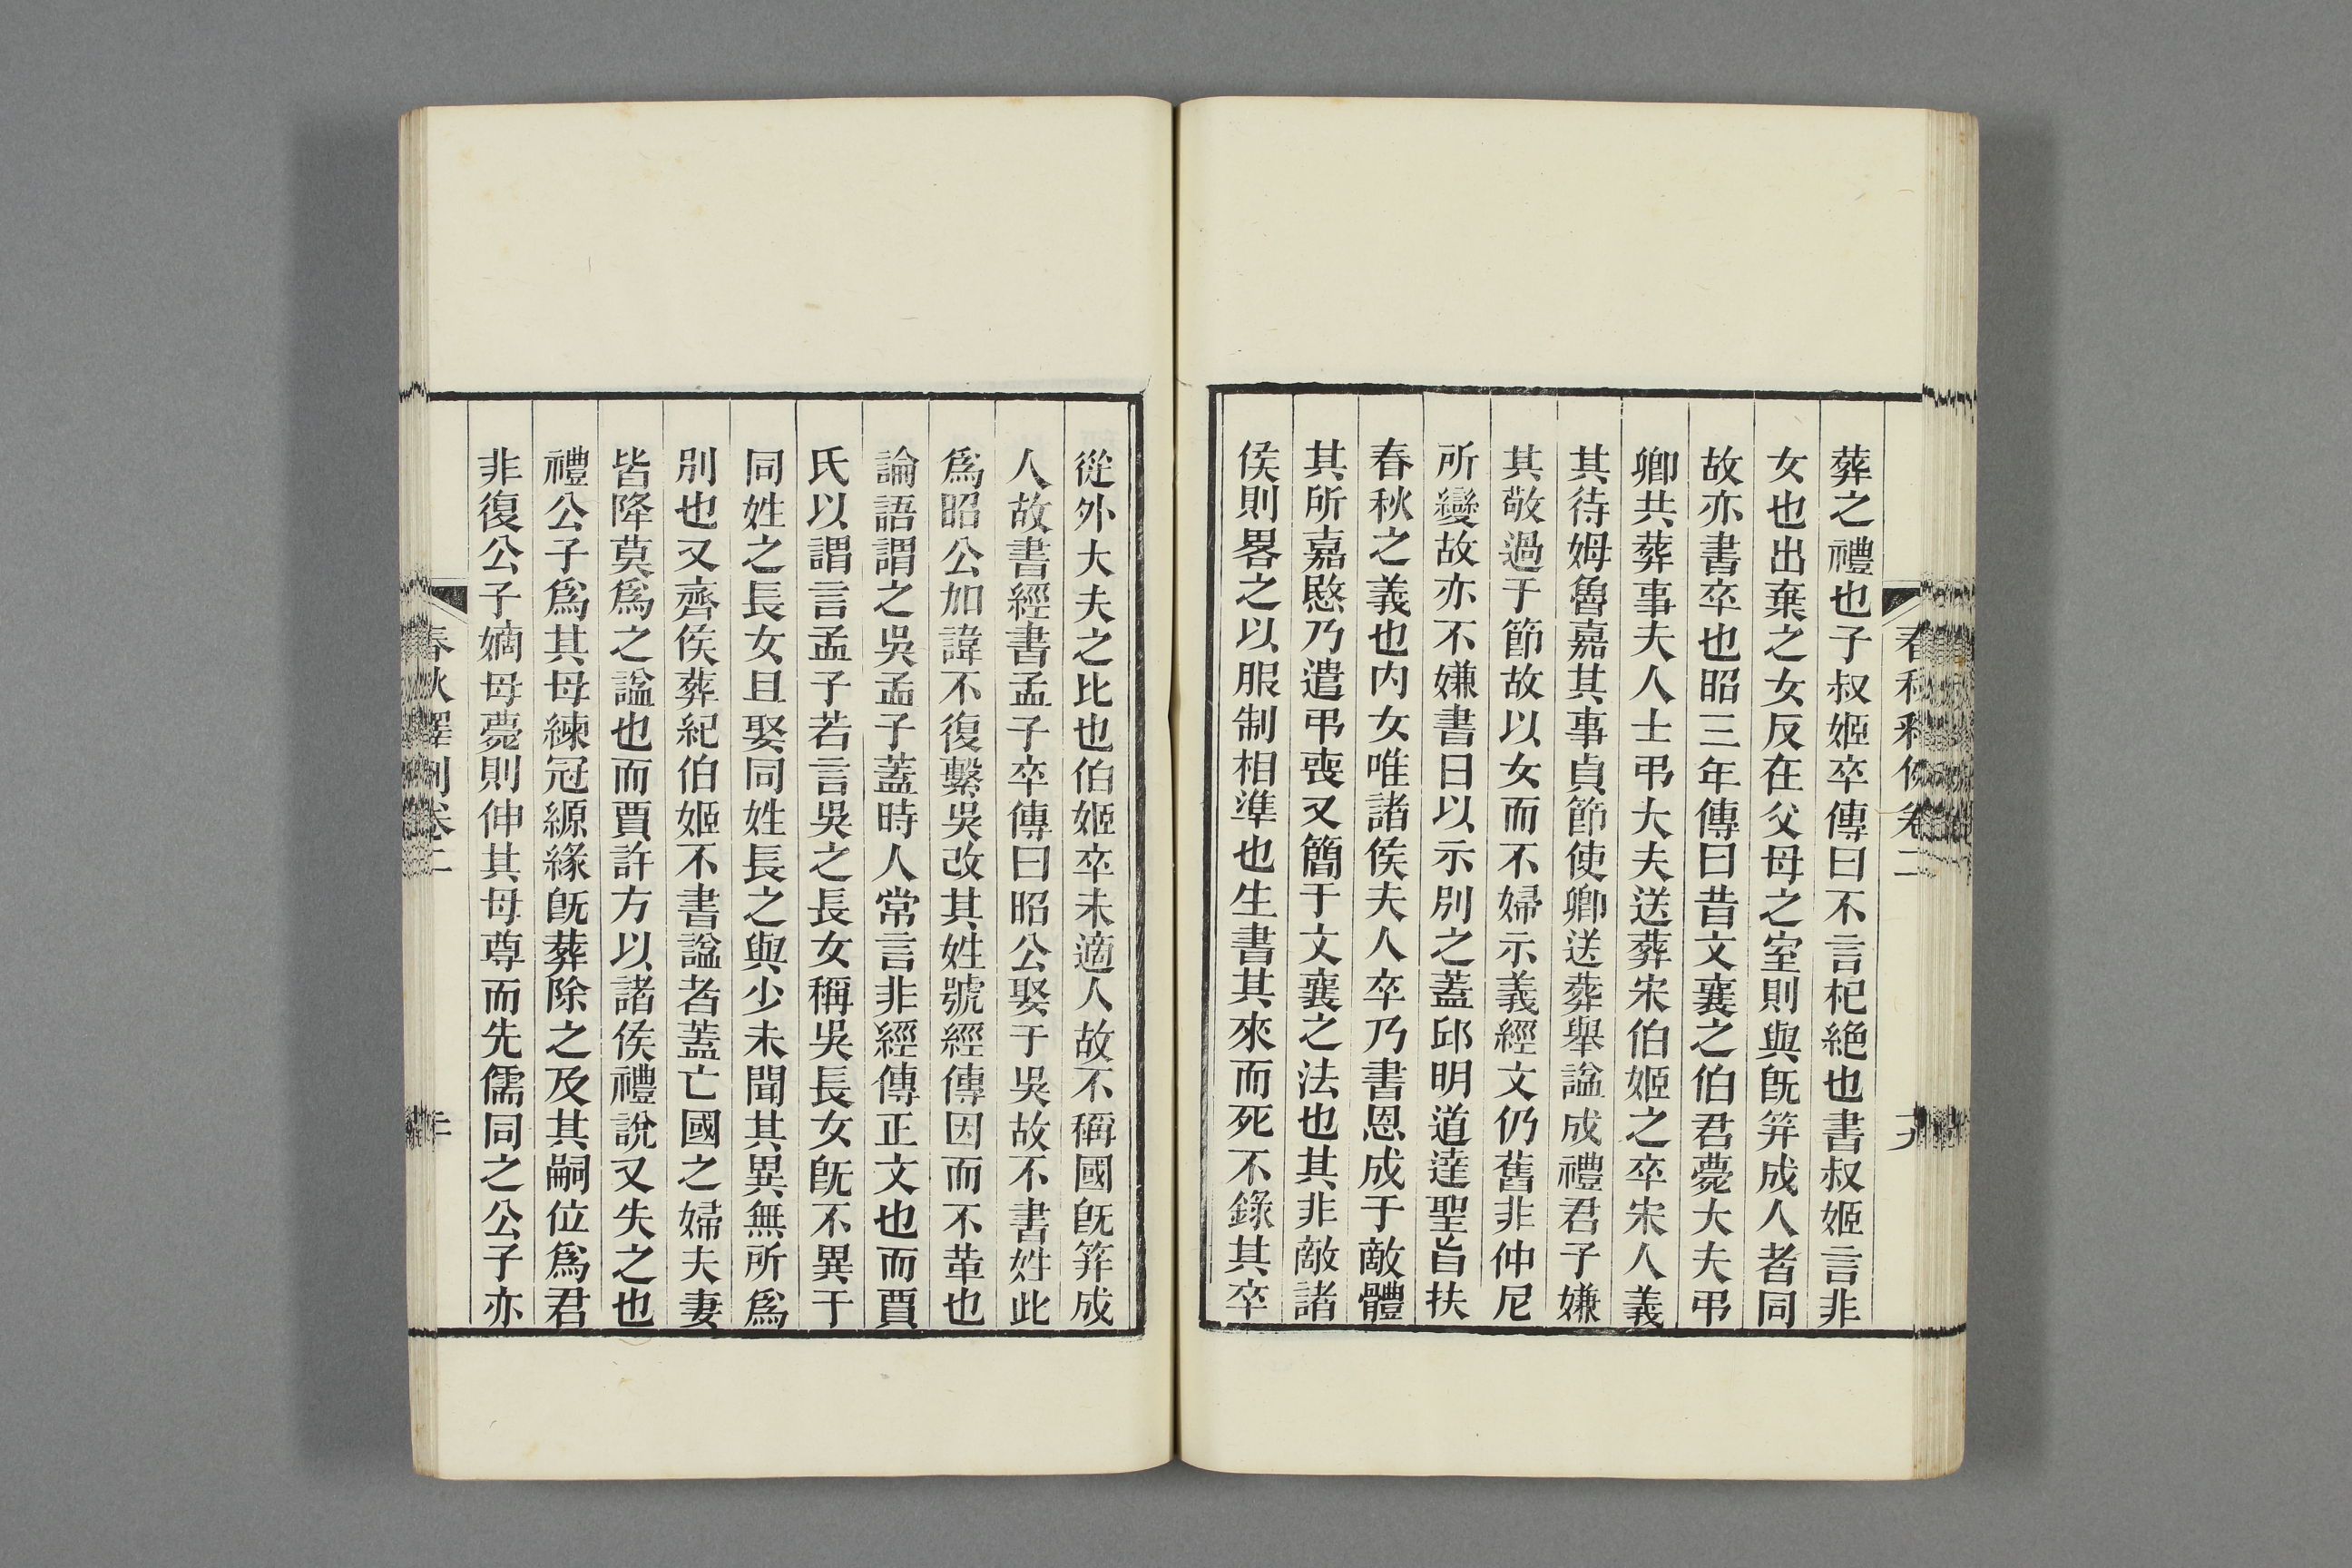 春秋釋例卷二
葬之禮也子叔姬卒傳曰不言杞絶也書叔姬言非
女也出棄之女反在父母之室則與旣笄成人者同
故亦書卒也昭三年傳曰昔文襄之伯君薨大夫弔
卿共葬事夫人士弔大夫送葬宋伯姬之卒宋人義
其待姆魯嘉其事貞節使卿送葬舉謚成禮君子嫌
其敬過于節故以女而不婦示義經文仍舊非仲尼
所變故亦不嫌書日以示別之蓋邱明道達聖旨扶
春秋之義也内女唯諸侯夫人卒乃書恩成于敵體
其所嘉愍乃遣弔喪又簡于文襄之法也其非敵諸
侯則畧之以服制相準也生書其來而死不錄其卒
從外大夫之比也伯姬卒未適人故不稱國旣笄成
人故書經書孟子卒傳曰昭公娶于吳故不書姓此
爲昭公加諱不復繫吳改其姓號經傳因而不革也
論語謂之吳孟子蓋時人常言非經傳正文也而賈
氏以謂言孟子若言吳之長女稱吳長女旣不異于
同姓之長女且娶同姓長之與少未聞其異無所爲
別也又齊侯葬紀伯姬不書謚者蓋亡國之婦夫妻
皆降莫爲之謚也而賈許方以諸侯禮說又失之也
禮公子爲其母練冠縓緣旣葬除之及其嗣位爲君
非復公子嫡母薨則伸其母尊而先儒同之公子亦
春秋釋例卷二